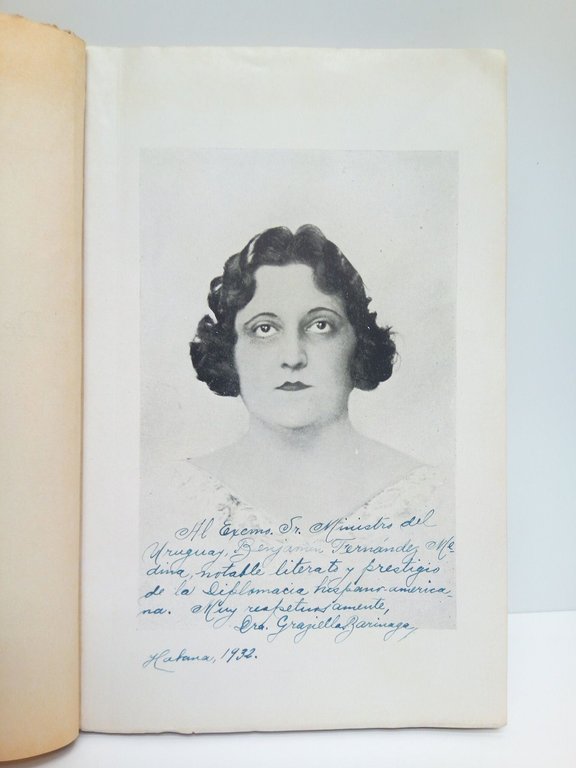 Al Excmo. Sr. Ministro del
Uruguay, Benjamín Fernández Me-
dina, notable literato y prestigio
de la Diplomacia hispano-america-
na. Muy respetuosamente,
Dra. Graziella Barinaga
Habana, 1932.